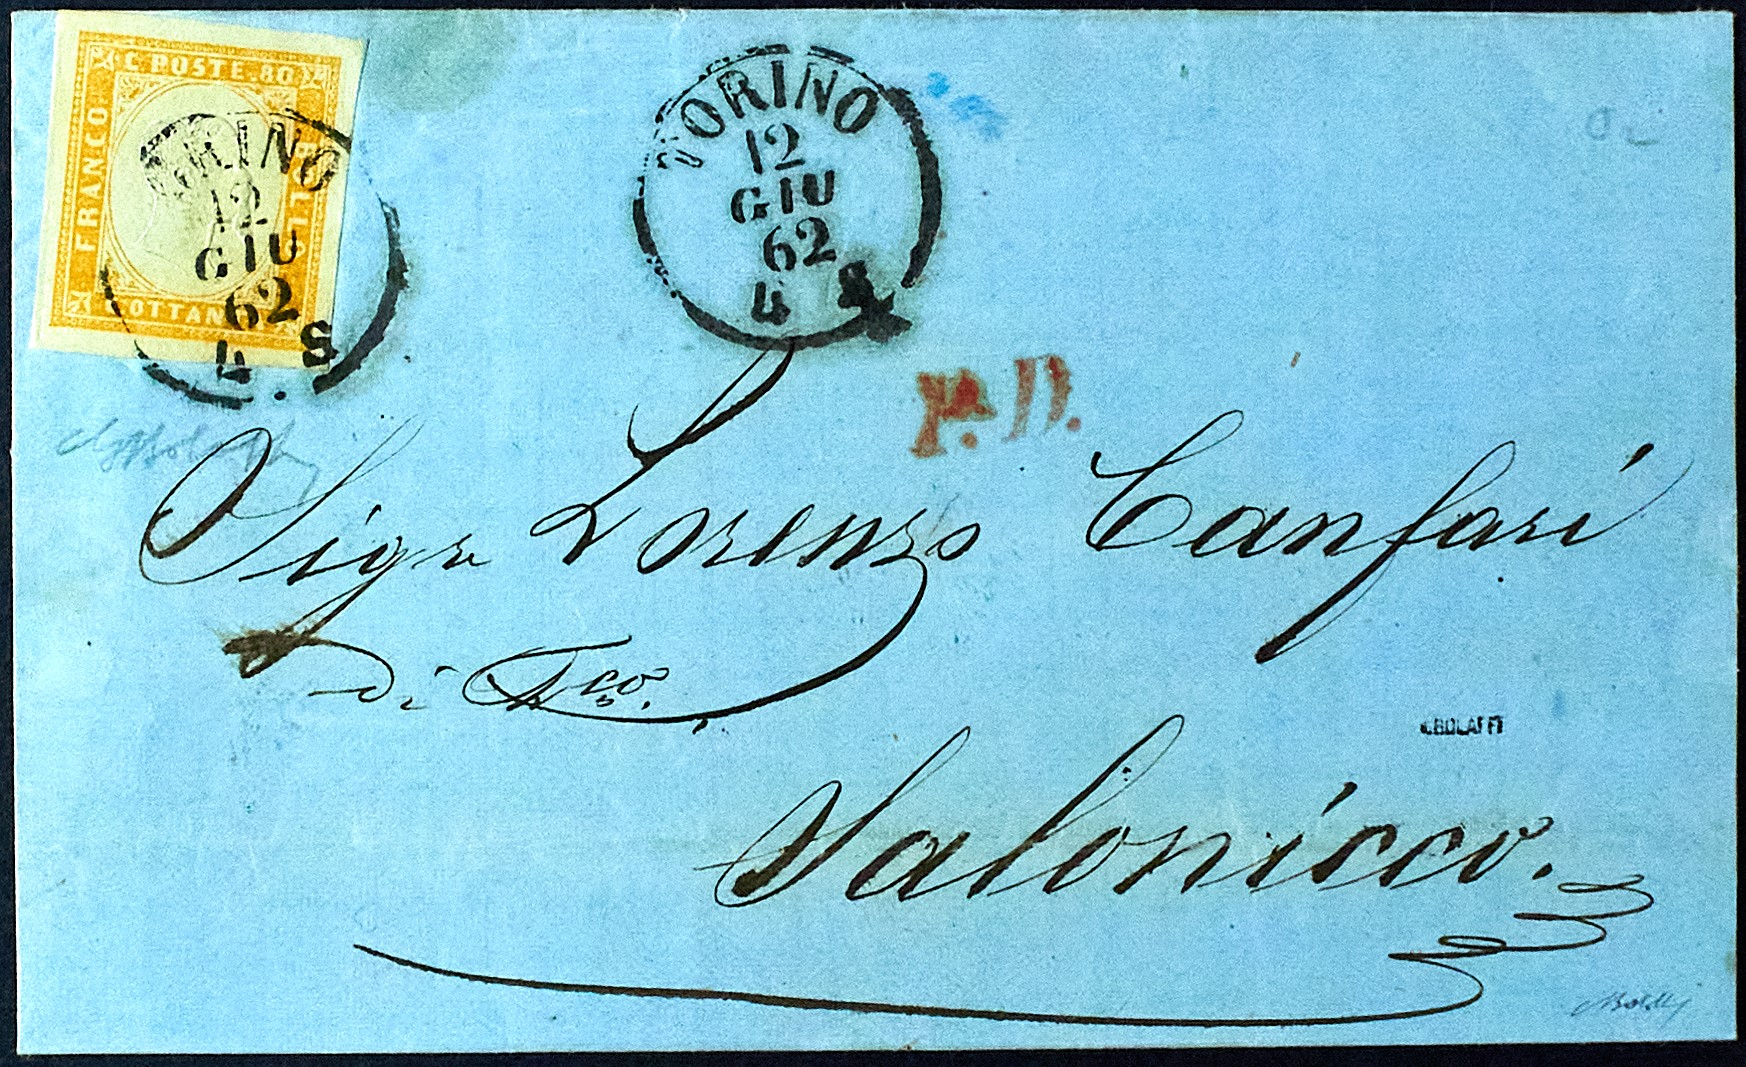 C. POSTE. 80
FRANCO
BOLLO
C. OTTAN
TORINO
12
GIU
62
4 S
TORINO
12
GIU
62
4 S
P. D.
Sigr Lorenzo Canfari
di Fco.
Salonicco.
A. BOLAFFI